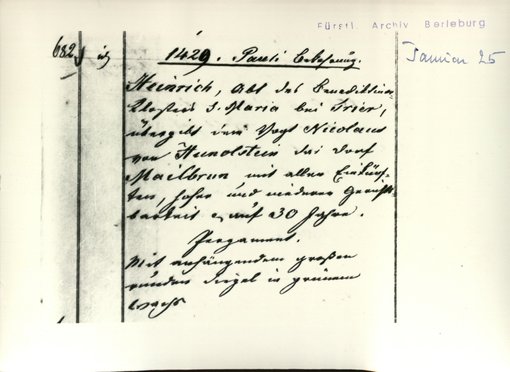 Fürstl. Archiv Berleburg
682
1429. Pauli Bekehrung.
Januar 25
Heinrich, Abt des Benediktiner
Klosters S. Maria bei Trier,
übergibt dem Vogt Nicolaus
von Hunolstein das Dorf
Mailbrun mit allen Einkünf-
ten, hoher und niederer Gerichts-
barkeit auf 30 Jahre.
Pergament.
Mit anhängendem großen
runden Siegel in grünem
Wachs